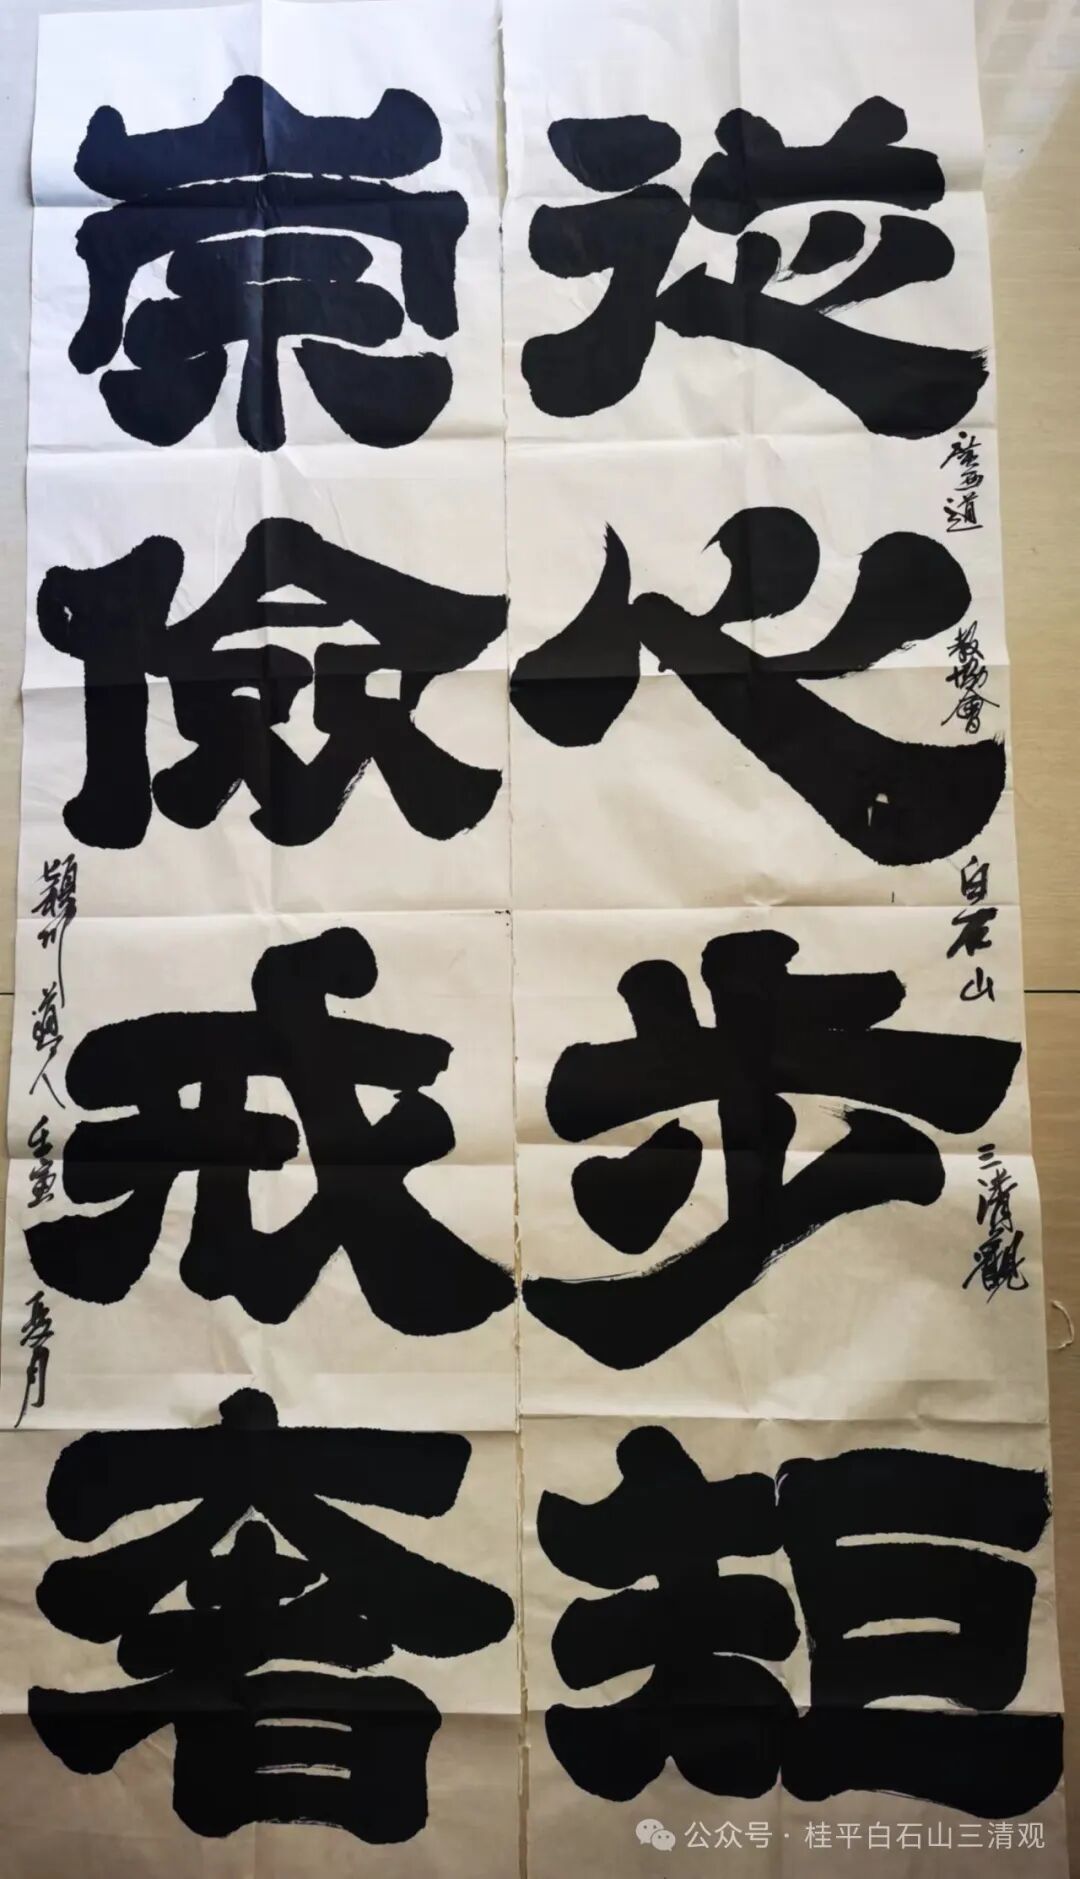 廣西道教協會白石山三清觀
從心步矩
崇儉戒奢
潁川道人壬寅夏月
公众号·桂平白石山三清观